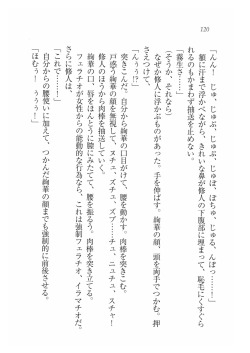 120
「んん！　じゅ、じゅぷ、じゅぷ、じゅぽ、ぽちゅ、じゅる、んぽっ……！」
　額に汗まで浮かべながら、きれいな鼻が修人の下腹部に埋まって、恥毛にくすぐら
れるのもかまわず抽送を止めない。
「霧生さ……」
（そうか、それなら）
　なぜか修人に余裕のようなものが浮かぶのがあった。手を伸ばす。絢華の顔、頭を両手でつかむ。押
さえつけて、
「んぅぅ!?」
　突きこんだ。自分から絢華の口目がけて、腰を動かす。肉棒を突きこむ。
　戸惑う絢華の顔を無視して、ヌチュ、ズチュ、ズプ……チュ、ニュチュ、スチャ！
修人のほうから肉棒を抽送していく。
　絢華の口、唇をほんとうに膣にみたてて、腰を振るう。肉棒を突き立てる。
　フェラチオが女性からの能動的な行為なら、これは強制フェラチオ、イラマチオだ。
さらに修人は、
「これで……！」
　自分からの腰使いに加えて、つかんだ絢華の顔までも強制的に前後させる。
「ほむぅー！　うぅぅー！」